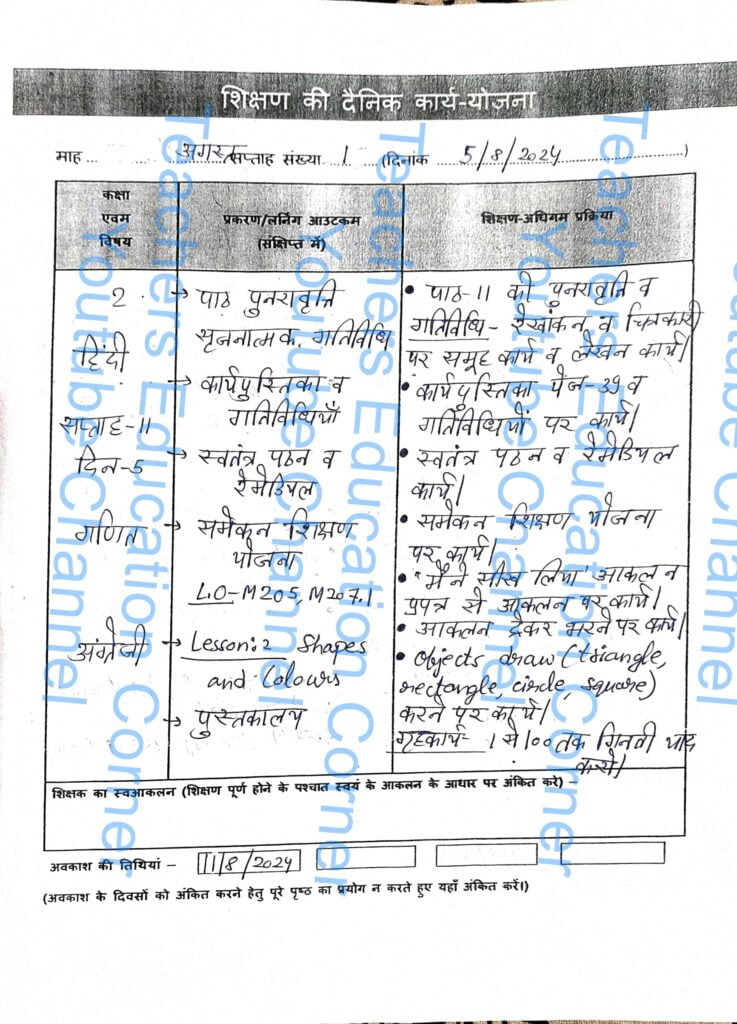 शिक्षण की दैनिक कार्य-योजना
माह ... अगस्त सप्ताह संख्या 1 (दिनांक 5/8/2024)
कक्षा
एवम
विषय
प्रकरण/लर्निंग आउटकम
(संक्षिप्त में)
शिक्षण-अधिगम प्रक्रिया
2
हिंदी
सप्ताह-11
दिन-5
गणित
अंग्रेजी
→ पाठ पुनरावृत्ति
सृजनात्मक गतिविधि
→ कार्यपुस्तिका व
गतिविधियाँ
→ स्वतंत्र पठन व
रेमेडियल
→ समेकन शिक्षण
योजना
L.O-M205, M207.1
→ Lesson:2 Shapes
and Colours
→ पुस्तकालय
• पाठ-11 की पुनरावृत्ति व
गतिविधि- रेखांकन व चित्रकारी
पर समूह कार्य व लेखन कार्य।
• कार्यपुस्तिका पेज-39 व
गतिविधियों पर कार्य।
• स्वतंत्र पठन व रेमेडियल
कार्य।
• समेकन शिक्षण योजना
पर कार्य।
• "मैंने सीख लिया" आकलन
प्रपत्र से आकलन पर कार्य।
• आकलन ट्रैकर भरने पर कार्य।
• Objects draw (triangle,
rectangle, circle, square)
करने पर कार्य।
गृहकार्य- 1 से 100 तक गिनती याद
करो।
शिक्षक का स्वआकलन (शिक्षण पूर्ण होने के पश्चात स्वयं के आकलन के आधार पर अंकित करे) –
अवकाश की तिथियां – 11/8/2024
(अवकाश के दिवसों को अंकित करने हेतु पूरे पृष्ठ का प्रयोग न करते हुए यहाँ अंकित करें।)
Teachers Education Corner
Youtube Channel
Teachers Education Corner
Youtube Channel
Teachers Education Corner
Youtube Channel